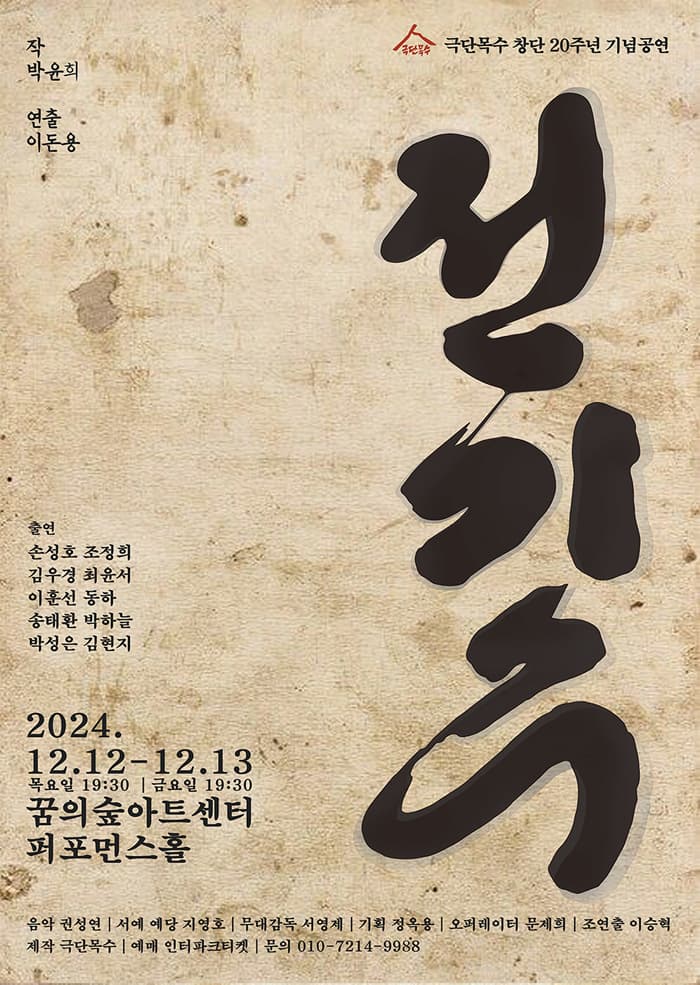 작
박윤희
연출
이돈용
극단목수
극단목수 창단 20주년 기념공연
전기수
출연
손성호 조정희
김우경 최윤서
이훈선 동하
송태환 박하늘
박성은 김현지
2024.
12.12-12.13
목요일 19:30 | 금요일 19:30
꿈의숲아트센터
퍼포먼스홀
음악 권성연 | 서예 예당 지영호 | 무대감독 서영제 | 기획 정옥용 | 오퍼레이터 문제희 | 조연출 이승혁
제작 극단목수 | 예매 인터파크티켓 | 문의 010-7214-9988